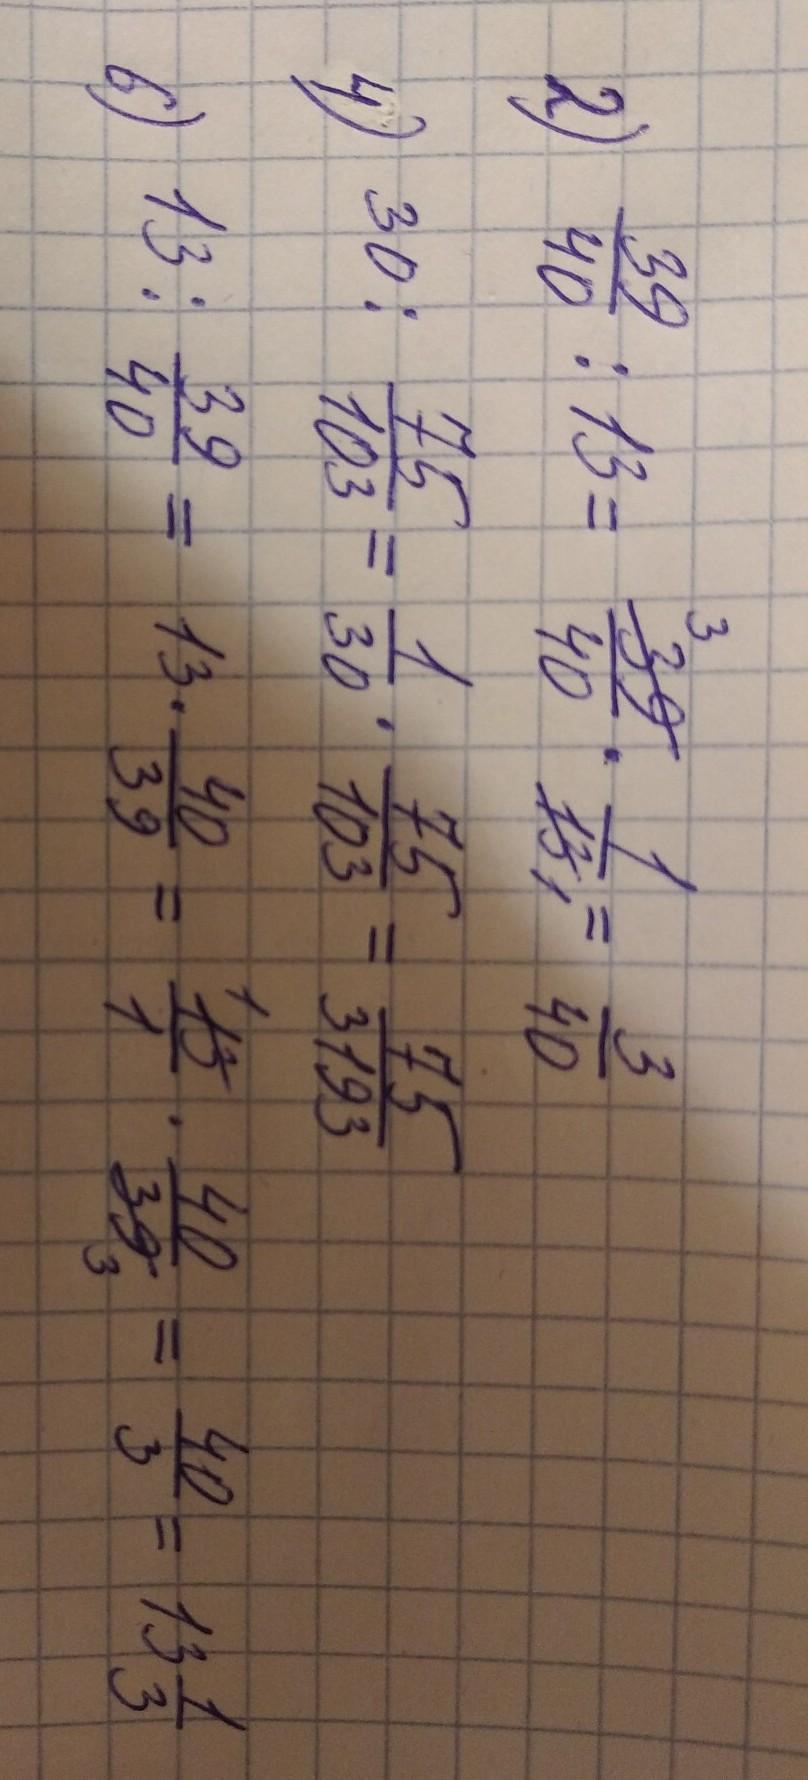 2) 39/40 : 13 = 39/40 3 · 1/13 1 = 3/40
4) 30 : 75/103 = 1/30 · 75/103 = 75/3193
6) 13 : 39/40 = 13 · 40/39 = 13/1 1 · 40/39 3 = 40/3 = 13 1/3